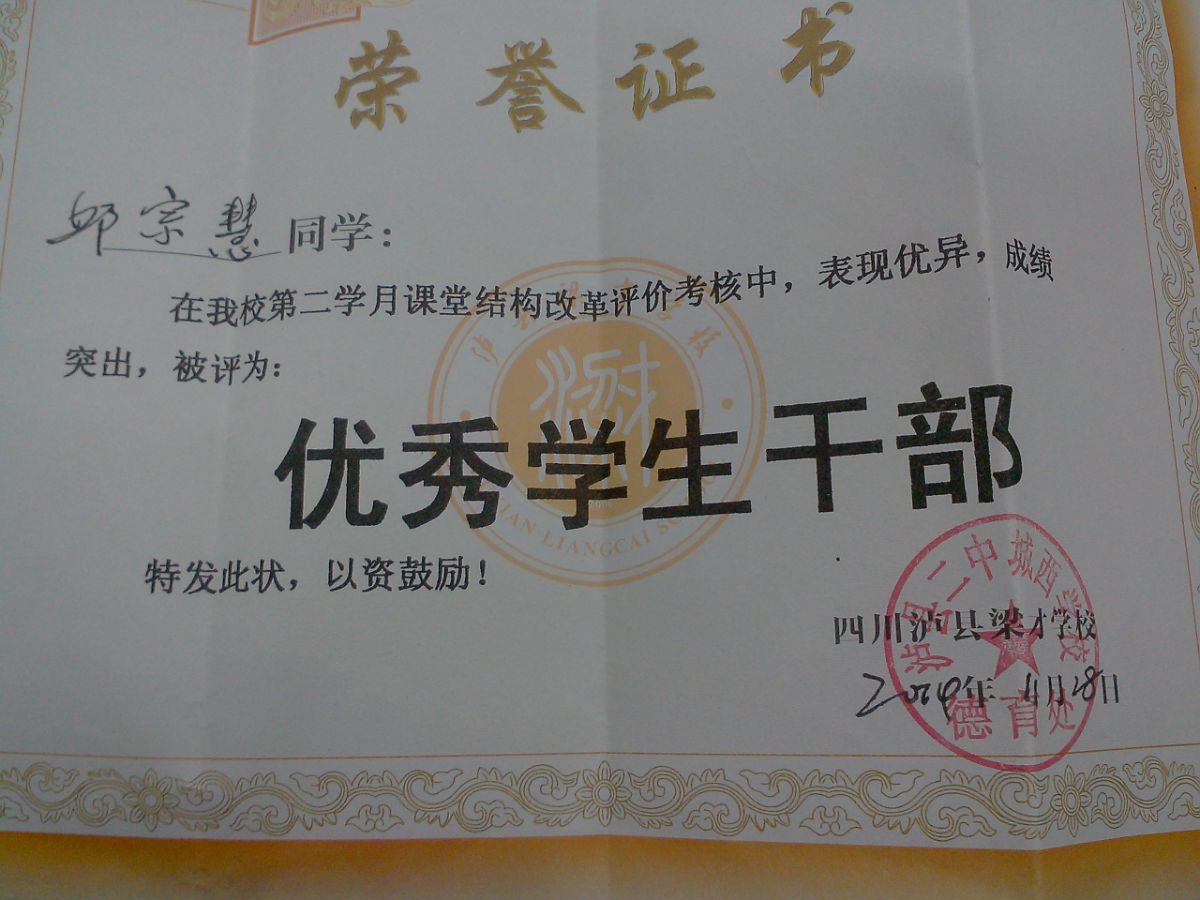 荣誉证书
邱宗慧同学：
在我校第二学月课堂结构改革评价考核中，表现优异，成绩
突出，被评为：
优秀学生干部
特发此状，以资鼓励！
四川泸县梁才学校
年11月28日
泸县二中城西学校
德育处
LIANGCAI